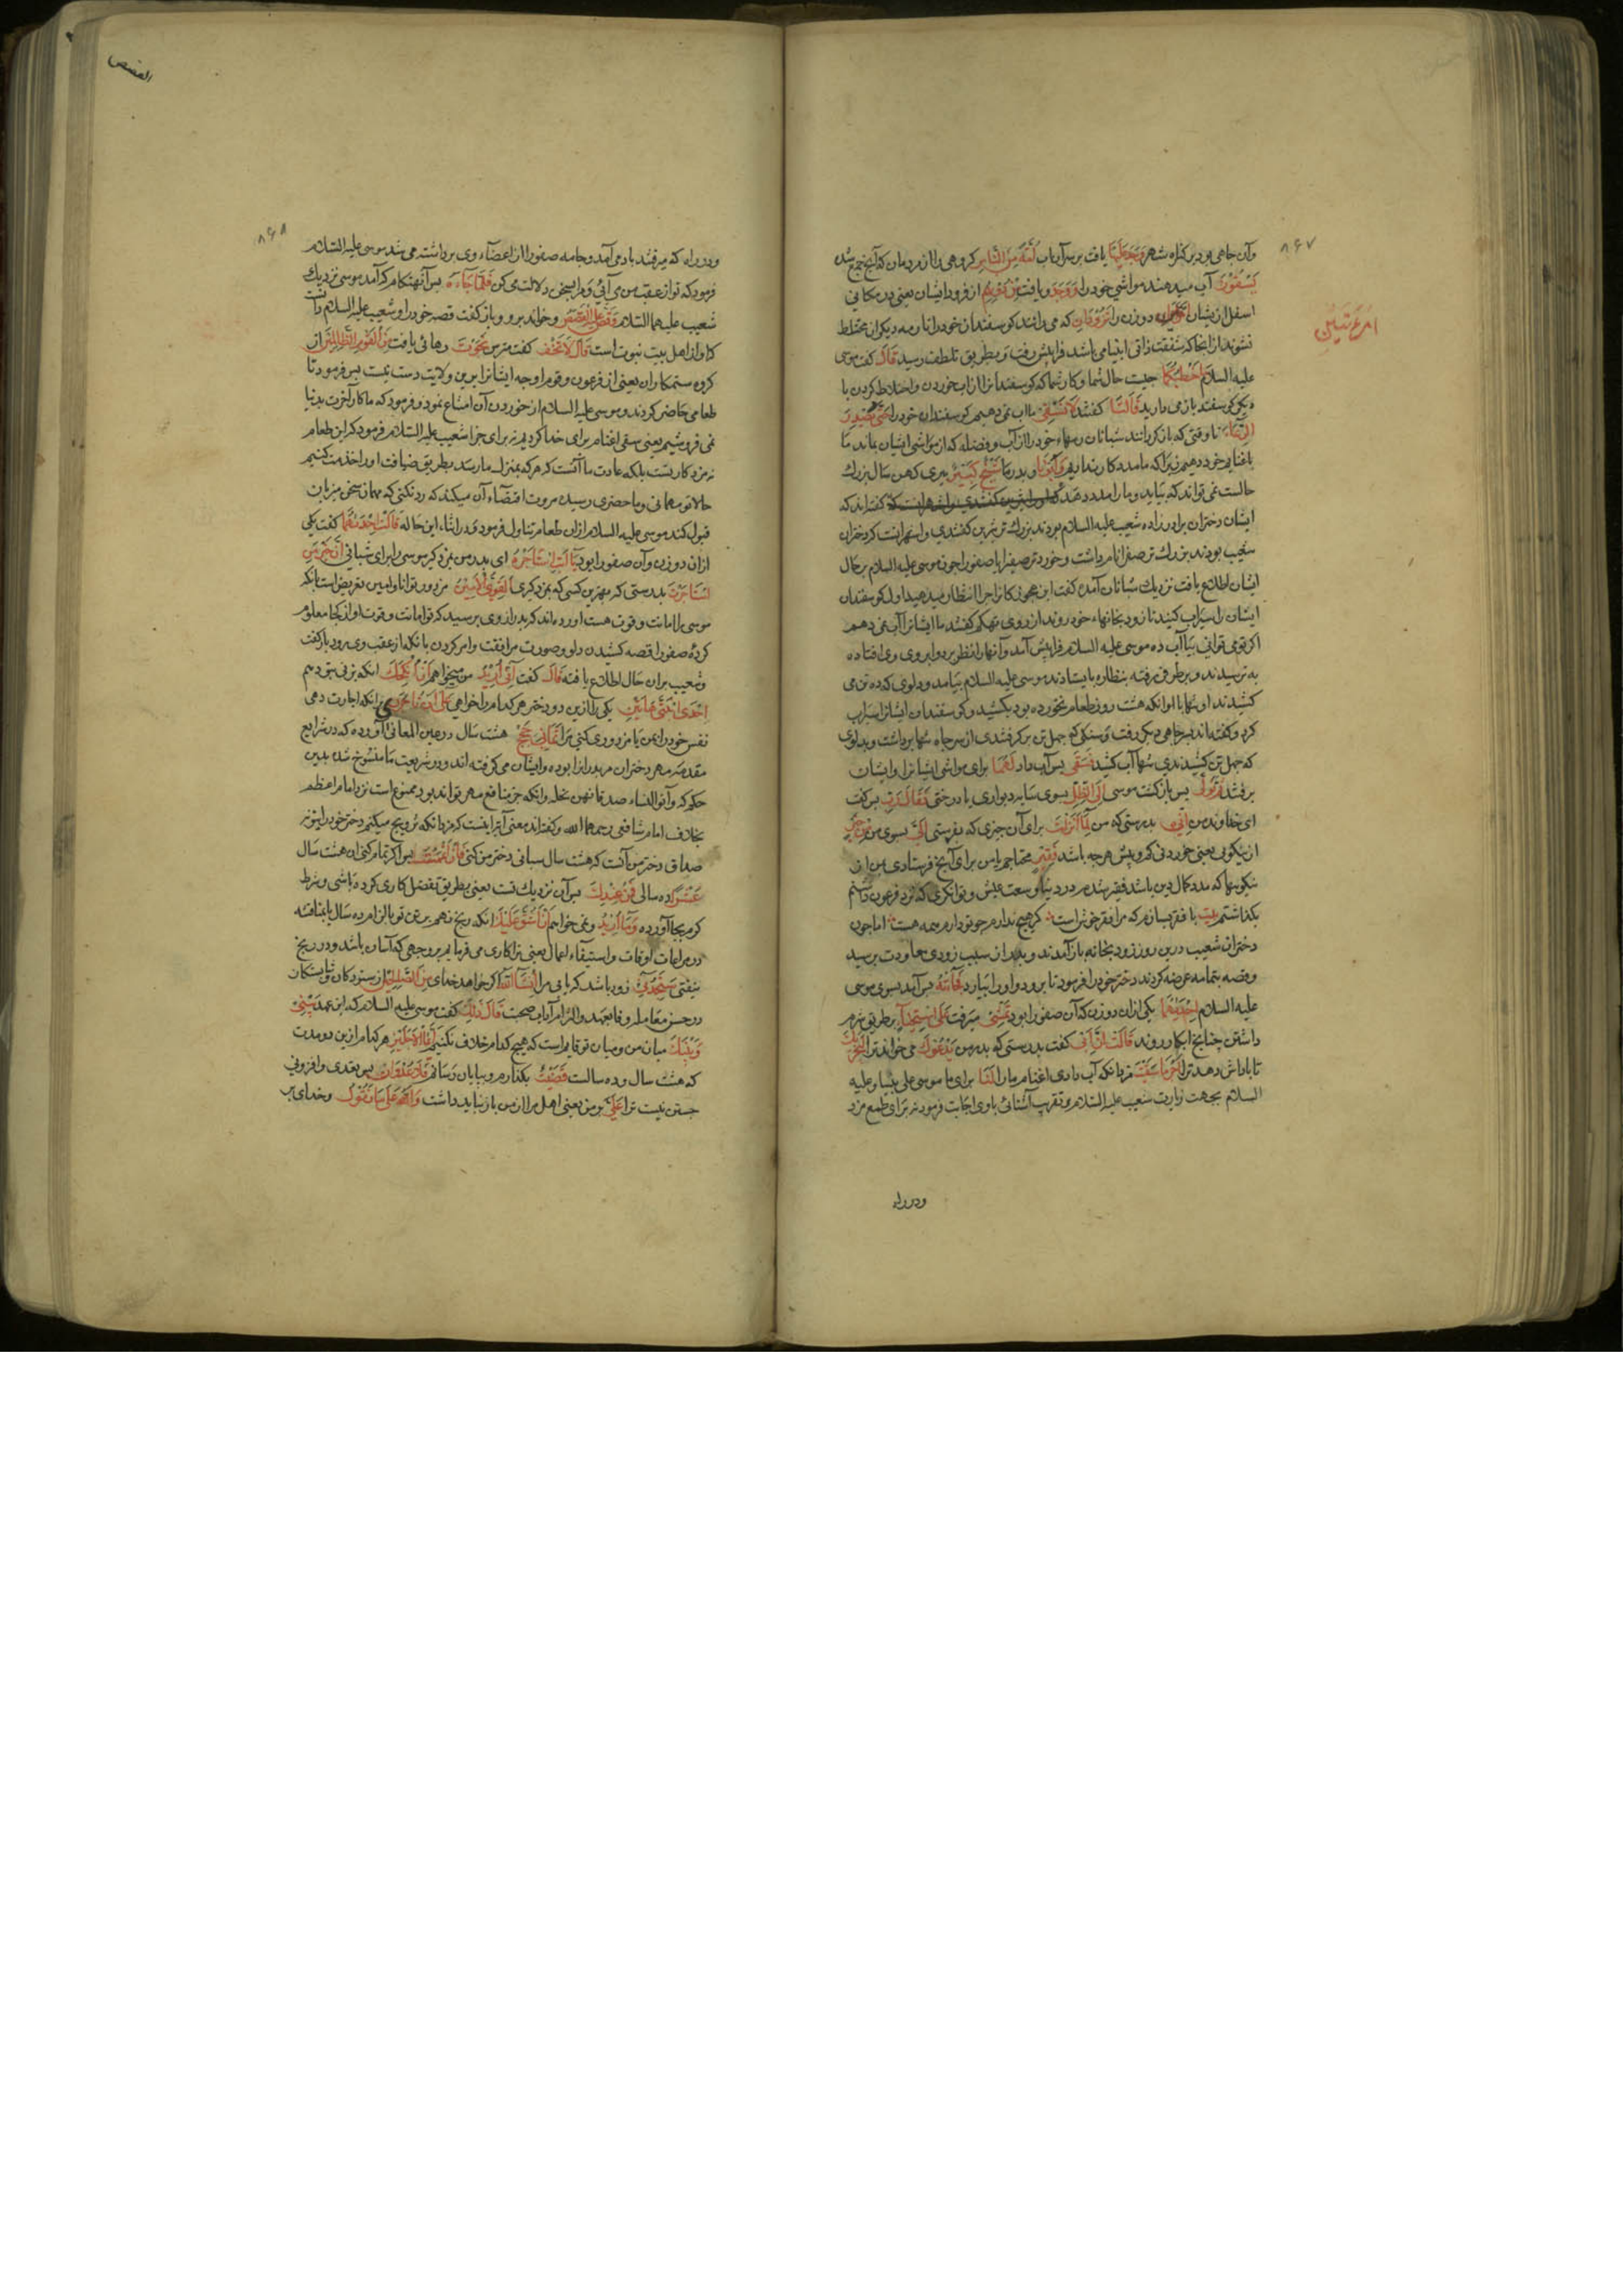 ۸۶۷
وآن چاهی بود بر کناره شهر وَجَدَ عَلَيْهِ یافت بر سر آن اب اُمَّةً مِّنَ النَّاسِ کروهی را از مردمان که آنجا جمع شده
يَسْقُونَ آب میدهند مواشی خود را وَوَجَدَ ویافت مِن دُونِهِمُ از فرود ایشان یعنی در مکانی
اسفل از یشان امْرَأَتَيْنِ دو زن را تَذُودَانِ که می راندند کوسفندان خود را تا رمه دیکران مختلط
امْرَأَتَيْنِ
نشوند از انجا که شفقت ذاتی انبیا می باشد فرا پیش رفت و بطریق تلطف رسید قَالَ کفت موسی
علیه السلام مَا خَطْبُكُمَا چیست حال شما و کار شما که کوسفندانرا از آب خوردن و اختلاط کردن با
دیکر کوسفند باز می دارید قَالَتَا کفتند لَا نَسْقِي ما اب نمی دهیم کوسفندان خود را حَتَّى يُصْدِرَ
الرِّعَاءُ تا وقتی که باز کردانند شبانان رمهاء خود را از آب و فضله که از مواشی ایشان بماند ما
باغنام خود دهیم زیرا که ما مددکار نداریم وَأَبُونَا و پدر ما شَيْخٌ كَبِيرٌ پیری کهن سال بزرك
حالست نمی تواند که بیاید و ما را مدد دهد کفته اند که
ایشان دختران برادرزاده شعیب علیه السلام بودند بزرك ترین کفتندی و اشهر انست که دختران
شعیب بودند بزرك تر صفرا نام داشت و خوردتر صفیرا یا صفورا چون موسی علیه السلام بر حال
ایشان اطلاع یافت نزدیك شبانان آمد کفت این عجوزکانرا چرا انتظار میدهید اول کوسفندان
ایشان را سیراب کنید تا زود بخانهاء خود روند از روی تهکم کفتند ما ایشانرا آب نمی دهیم
اکر تو می توانی بیا آب ده موسی علیه السلام فرا پیش آمد و آنها را نظر بر دو ابروی وی افتاده
بترسیدند و بر طرفی رفته بنظاره بایستادند موسی علیه السلام بیامد و دلوی که ده تن می
کشیدند او تنها با انکه هشت روز طعام نخورده بود بکشید و کوسفندان ایشانرا سیراب
کرد و کفته اند بر چاهی دیکر رفت و سنکی که چهل تن بر کرفتندی از سر چاه تنها برداشت و بدلوی
که چهل تن کشیدندی تنها آب کشید فَسَقَى پس آب داد لَهُمَا برای مواشی ایشانرا و ایشان
برفتند ثُمَّ تَوَلَّى پس باز کشت موسی إِلَى الظِّلِّ بسوی سایه دیواری یا درختی فَقَالَ رَبِّ پس کفت
ای خداوند من إِنِّي بدرستی که من لِمَا أَنزَلْتَ برای آن چیزی که بفرستی إِلَيَّ بسوی من مِنْ خَيْرٍ
از نیکویی یعنی خوردنی کم و بیش هر چه باشد فَقِيرٌ محتاجم یا من برای آنچه فرستادی من از
نیکویها که مدد کمال دین باشد فقیر شدم در دنیا و سعت عیش و توانکری که نزد فرعون داشتم
بکذاشتم بیت با فقر بسازم که مرا فقر خوش است کر هیچ ندارم چو تو دارم همه هست اما چون
دختران شعیب درین روز زود بخانه باز آمدند و پدر از سبب زودی معاودت بپرسید
و قصه بتمامه عرضه کردند دختر خود را فرمود تا برود و او را بیارد فَجَاءَتْهُ پس آمد بسوی موسی
علیه السلام إِحْدَاهُمَا یکی از ان دو زن که آن صفورا بود تَمْشِي میرفت عَلَى اسْتِحْيَاءٍ بر طریق شرم
داشتن چنانچ ابکار روند قَالَتْ إِنَّ أَبِي کفت بدرستی که پدر من يَدْعُوكَ می خواند ترا لِيَجْزِيَكَ
تا پاداش دهد ترا أَجْرَ مَا سَقَيْتَ مزد انکه آب دادی اغنام ما را لَنَا برای ما موسی علی نبینا و علیه
السلام بجهت زیارت شعیب علیه السلام و تقریب آشنائی با وی اجابت فرمود نه برای طمع مزد
ودر راه
القصص
۸۶۸
ودر راه که میرفتند باد می آمد و جامه صفورا از اعضآء وی برداشته می شد موسی علیه السلام
فرمود که تو از عقب من می آیی و مرا بسخن دلالت می کن فَلَمَّا جَاءَهُ پس آنهنکام که آمد موسی نزدیك
شعیب علیهما السلام وَقَصَّ عَلَيْهِ الْقَصَصَ وخواند برو و باز کفت قصه خود را و شعیب علیه السلام دانست
که او از اهل بیت نبوت است قَالَ لَا تَخَفْ کفت مترس نَجَوْتَ رهائی یافت مِنَ الْقَوْمِ الظَّالِمِينَ از
کروه ستمکاران یعنی از فرعون و قوم او چه ایشانرا برین ولایت دست نیست پس فرمود تا
طعامی حاضر کردند و موسی علیه السلام از خوردن آن امتناع نمود و فرمود که ما کار آخرت بدنیا
نمی فروشیم یعنی سقی اغنام برای خدا کردیم نه برای جزا شعیب علیه السلام فرمود که این طعام
نه مزد کار تست بلکه عادت ما آنست که هر که بمنزل ما رسد بطریق ضیافت او را خدمت کنیم
حالا تو مهمانی و ما حضری رسیده مروت اقتضآء آن میکند که رد نکنی که مهمان سخن میزبان
قبول کند موسی علیه السلام از ان طعام تناول فرمود و در اثناء این حاله قَالَتْ إِحْدَاهُمَا کفت یکی
از ان دو زن و آن صفورا بود يَا أَبَتِ اسْتَأْجِرْهُ ای پدر من بمزد کیر موسی را برای شبانی إِنَّ خَيْرَ مَنِ
اسْتَأْجَرْتَ بدرستی که بهترین کسی که بمزد کیری الْقَوِيُّ الْأَمِينُ مزدور توانا و امین تعریض است بانکه
موسی را امانت و قوت هست اورده اند که پدر از وی پرسید که تو امانت و قوت او از کجا معلوم
کردۀ صفورا قصه کشیدن دلو و صورت مرافقت و امر کردن بانکه از عقب وی رود باز کفت
وشعیب بر ان حال اطلاع یافته قَالَ کفت إِنِّي أُرِيدُ من میخواهم أَنْ أُنكِحَكَ انکه بزنی بتو دهم
إِحْدَى ابْنَتَيَّ هَاتَيْنِ یکی را ازین دو دختر هر کدام را خواهی عَلَى أَن تَأْجُرَنِي بر انکه اجارت دهی
نفس خود را بمن یا مزدوری کنی مرا ثَمَانِيَ حِجَجٍ هشت سال در عین المعانی آورده که در شرایع
مقدمه مهر دختران مر پدران را بوده و ایشان می کرفته اند و در شریعت ما منسوخ شده بدین
حکم که وآتوا النساء صدقاتهن نحلة و انکه جز منافع مهر تواند بود ممنوع است نزد امام اعظم
بخلاف امام شافعی رحمهما الله و کفته اند معنی آنرا اینست که مزد انکه تزویج میکنم دختر خود را بتو نه
صداق دختر من آنست که هشت سال شبانی دختر من کنی فَإِنْ أَتْمَمْتَ پس اکر تمام کنی ان هشت سال
عَشْرًا ده سالی فَمِنْ عِندِكَ پس آن نزدیك تست یعنی بطریق تفضل کاری کرده باشی و شرط
کرم بجا آورده وَمَا أُرِيدُ و نمی خواهم أَنْ أَشُقَّ عَلَيْكَ انکه رنج نهم بر تو بالزام ده سال یا بمناقشه
در مراعات اوقات و استیفاء اعمال یعنی ترا کاری می فرمایم بر وجهی که آسان باشد و در رنج
نیفتی سَتَجِدُنِي زود باشد که یابی مرا إِن شَاءَ اللَّهُ اکر خواهد خدای مِنَ الصَّالِحِينَ از ستودکان و شایستکان
در حسن معامله و وفا بعهد و الزام آداب صحبت قَالَ ذَلِكَ کفت موسی علیه السلام که این عهد بَيْنِي
وَبَيْنَكَ میان من و میان تو قایم است که هیچ کدام خلاف نکنیم أَيَّمَا الْأَجَلَيْنِ هر کدام ازین دو مدت
که هشت سال و ده سالست قَضَيْتُ بکذارم و بپایان رسانم فَلَا عُدْوَانَ پس تعدی و افزونی
جستن نیست ترا عَلَيَّ بر من یعنی اهل مرا از من باز نباید داشت وَاللَّهُ عَلَى مَا نَقُولُ وخدای بر